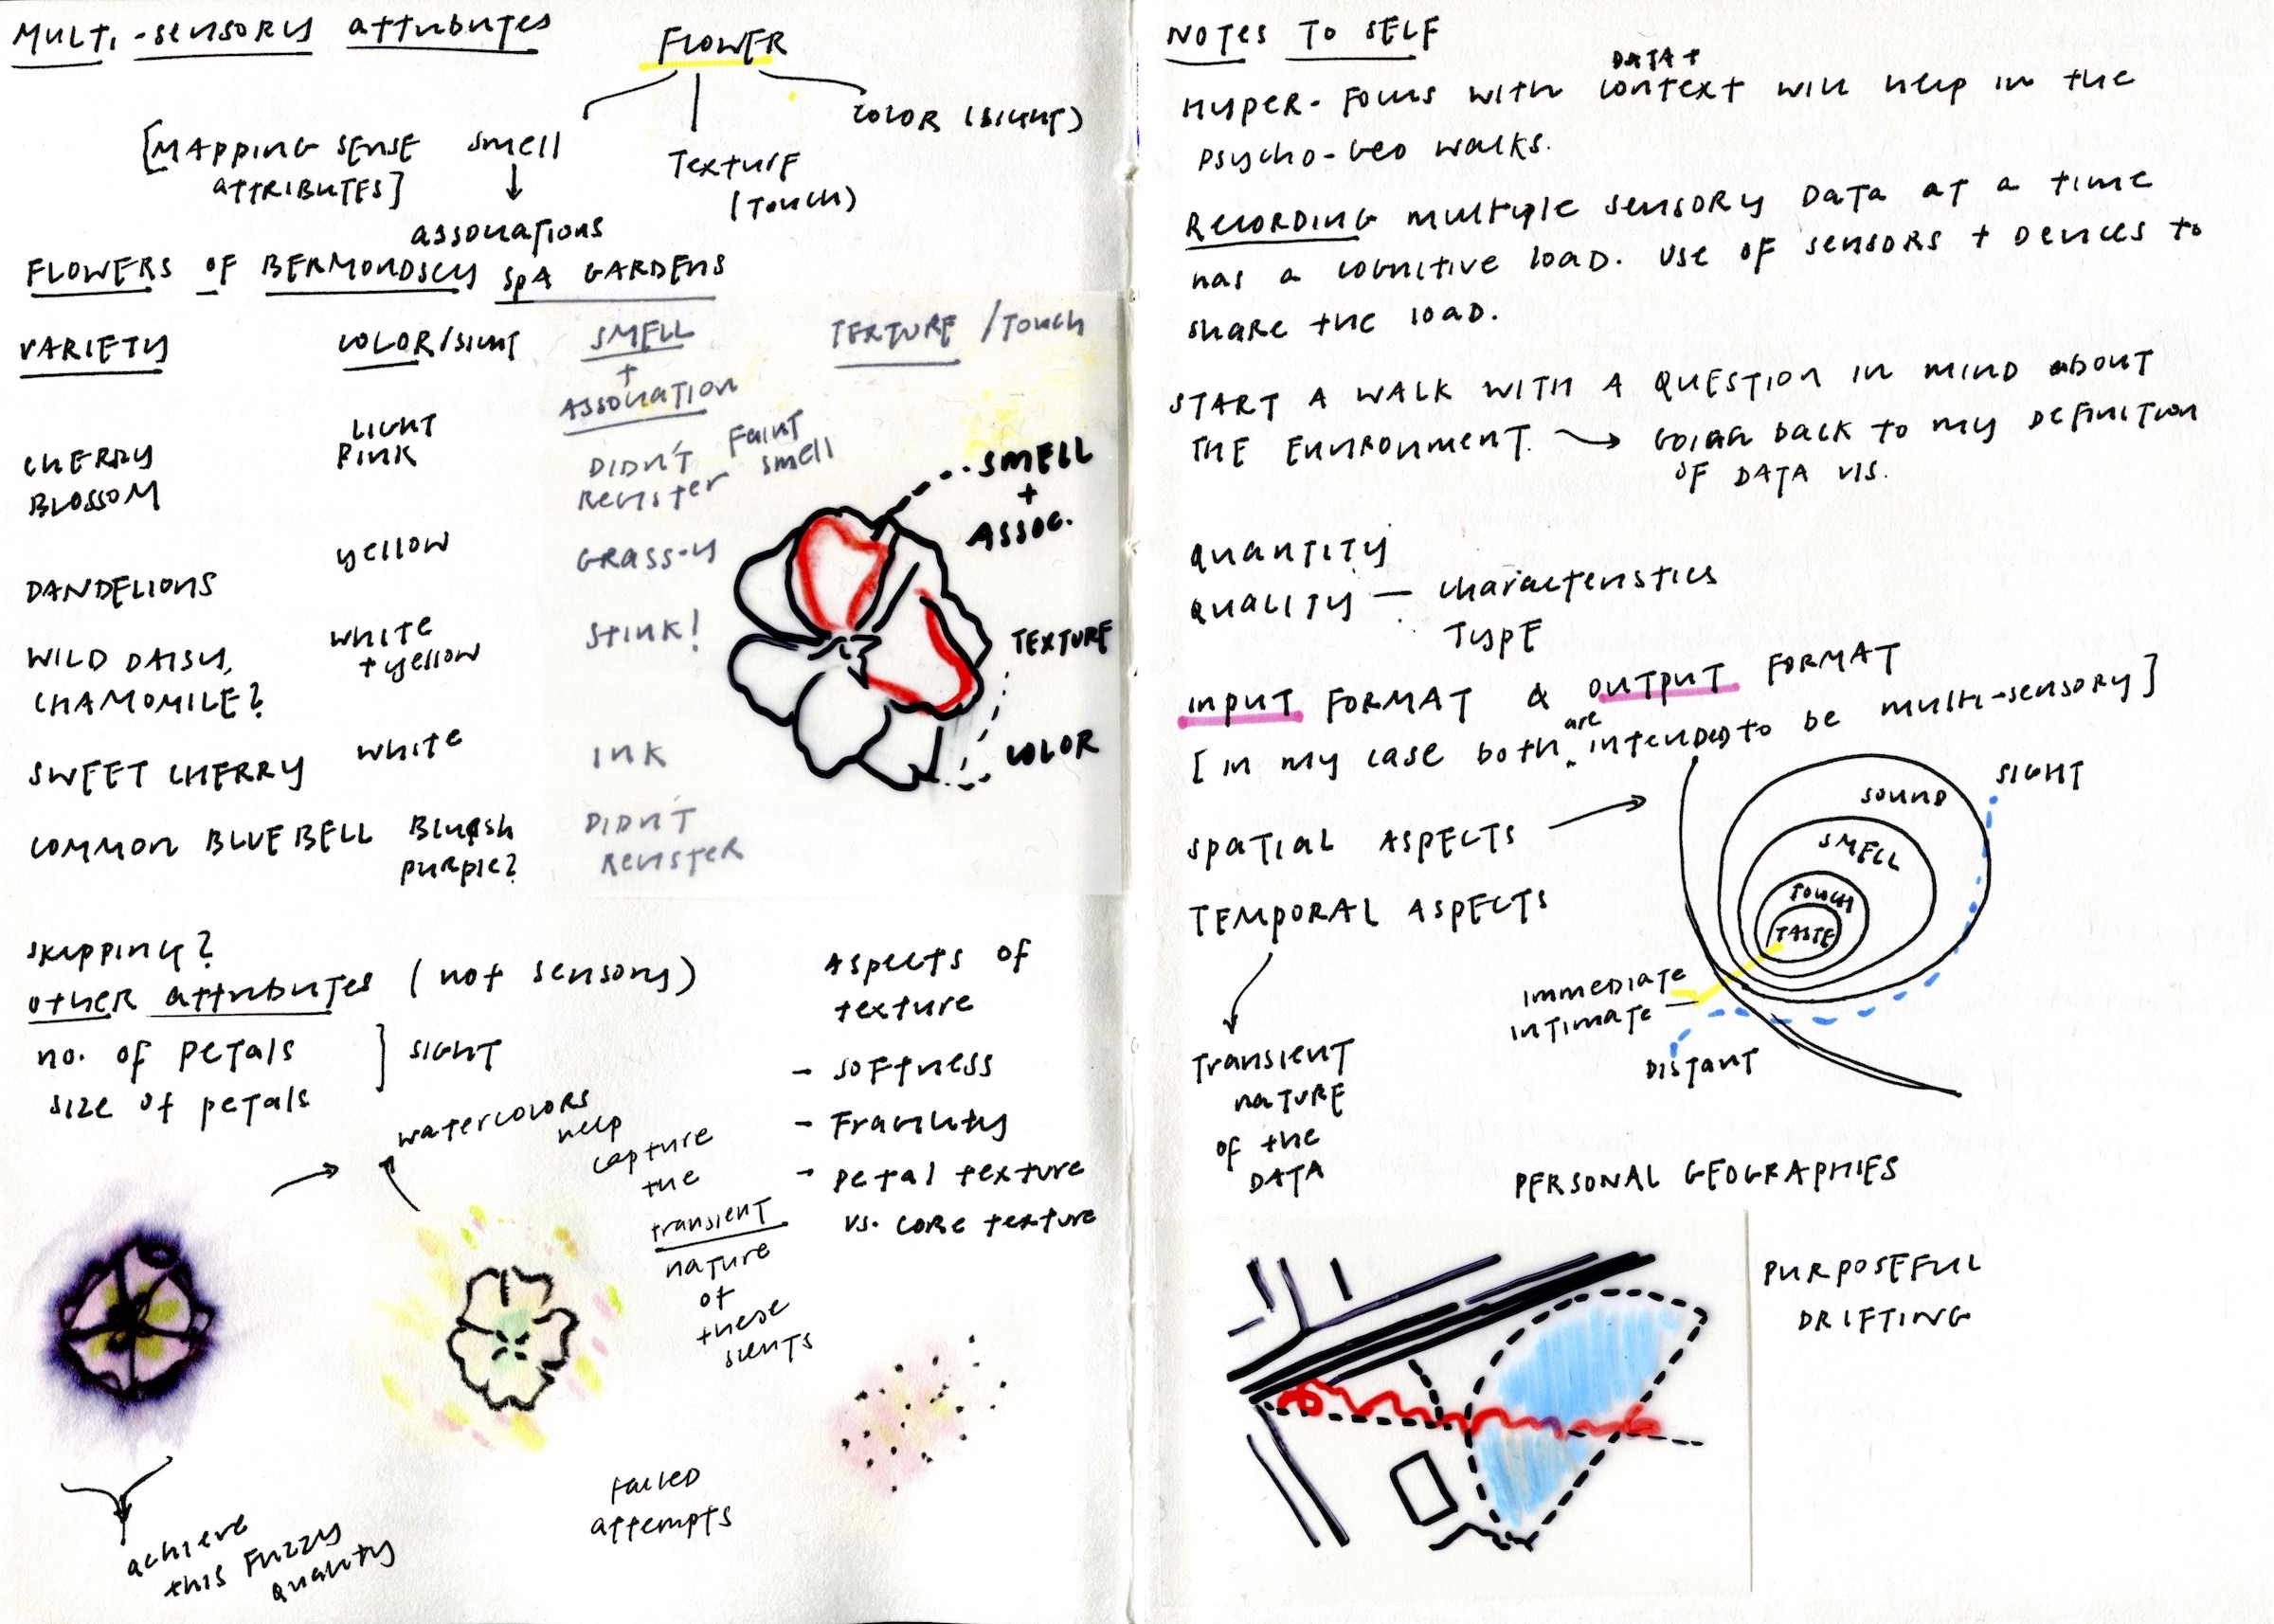 MULTI-SENSORY attributes
FLOWER
[MAPPING SENSE
ATTRIBUTES]
smell
Texture
(Touch)
COLOR (SIGHT)
associations
FLOWERS OF BERMONDSEY SPA GARDENS
VARIETY
COLOR/SIGHT
SMELL
+
ASSOCIATION
TEXTURE / Touch
CHERRY
BLOSSOM
LIGHT
PINK
DIDN'T
Register
Faint
smell
DANDELIONS
yellow
GRASS-y
WILD DAISY,
CHAMOMILE?
white
+ yellow
STINK!
SWEET CHERRY
white
INK
COMMON BLUEBELL
Bluish
purple?
DIDN'T
Register
SMELL
+
ASSOC.
TEXTURE
COLOR
SKIPPING?
other attributes (not sensory)
no. of petals
size of petals
SIGHT
Aspects of
texture
- softness
- Fragility
- petal texture
vs. core texture
watercolors
help
capture
the
transient
nature
of
these
scents
achieve
this Fuzzy
quality
Failed
attempts
NOTES TO SELF
DATA +
Hyper-focus with context will help in the
psycho-geo walks.
Recording multiple sensory data at a time
has a cognitive load. Use of sensors + devices to
share the load.
START A WALK WITH A QUESTION IN MIND about
THE ENVIRONMENT. → Going back to my definition
of DATA VIS.
Quantity
Quality — characteristics
Type
INPUT FORMAT & OUTPUT FORMAT
[in my case both are intended to be multi-sensory]
SPATIAL ASPECTS
SIGHT
SOUND
SMELL
TOUCH
TASTE
TEMPORAL ASPECTS
IMMEDIATE
INTIMATE
DISTANT
Transient
nature
of the
DATA
PERSONAL GEOGRAPHIES
PURPOSEFUL
DRIFTING